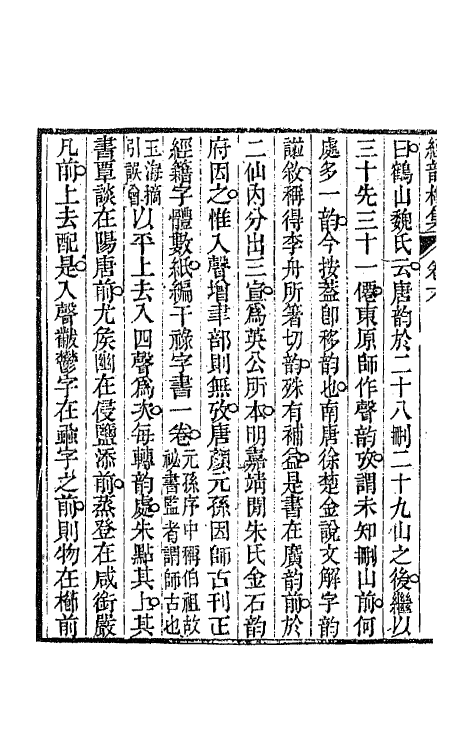 經韵樓集 卷六
曰鶴山魏氏云唐韵於二十八刪二十九山之後繼以
三十先三十一僊東原師作聲韵攷謂未知刪山前何
處多一韵今按蓋卽移韵也南唐徐楚金說文解字韵
譜敘稱得李舟所箸切韵殊有補益是書在廣韵前於
二仙內分出三宣爲英公所本明嘉靖閒朱氏金石韵
府因之惟入聲增聿部則無攷唐顏元孫因師古刊正
經籍字體數紙編干祿字書一卷元孫序中稱伯祖故祕書監者謂師古也
玉海摘引誤曾以平上去入四聲爲次每轉韵處朱點其上其
書覃談在陽唐前尤矦幽在侵鹽添前蒸登在咸銜嚴
凡前上去配是入聲黻鬱字在蝨字之前則物在櫛前